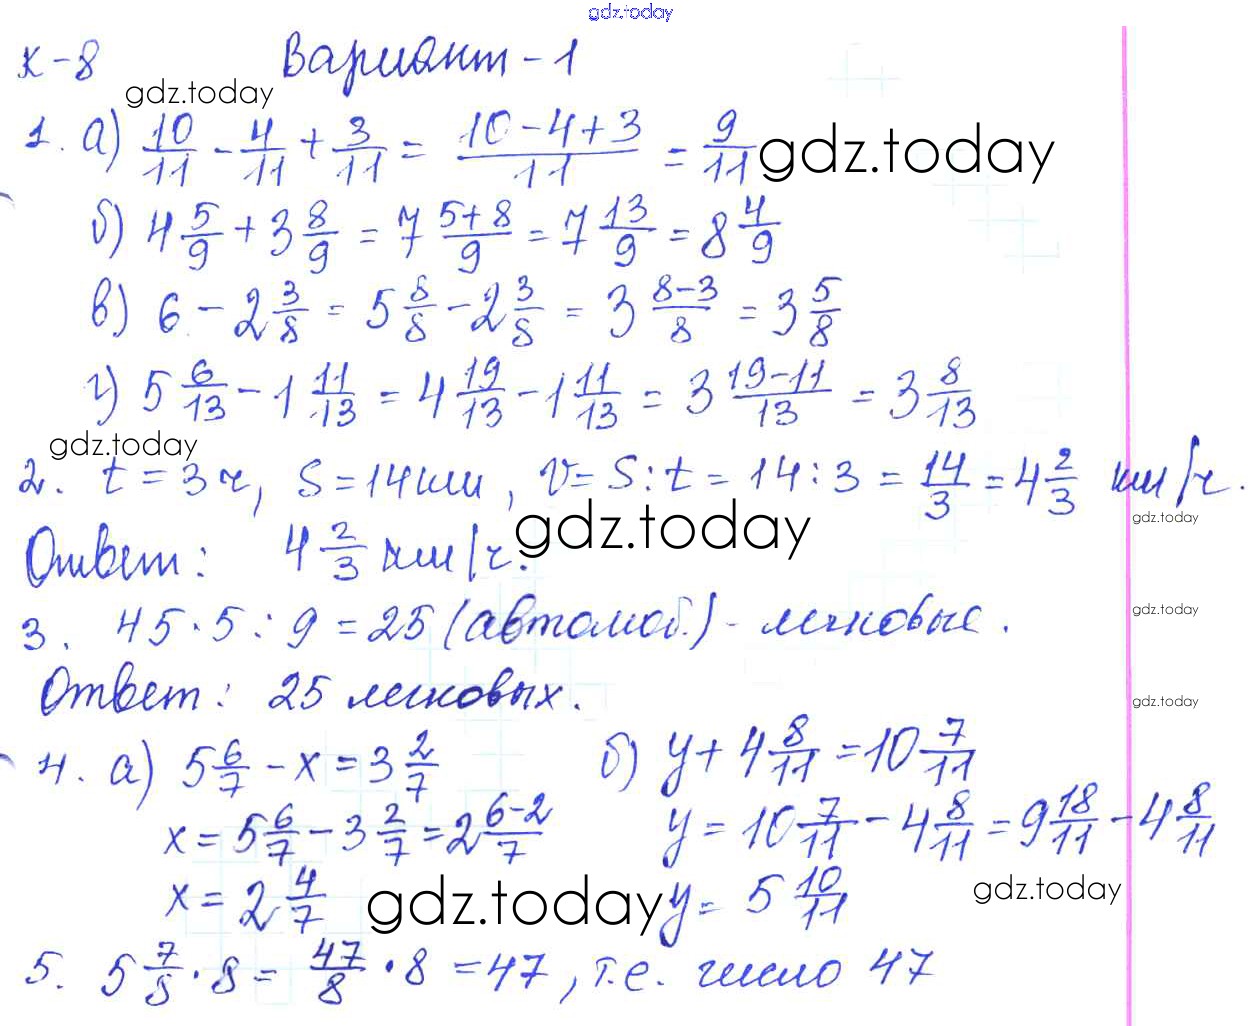 gdz.today
К-8 Вариант-1
gdz.today
1. а) 10/11 - 4/11 + 3/11 = (10-4+3)/11 = 9/11 gdz.today
б) 4 5/9 + 3 8/9 = 7 (5+8)/9 = 7 13/9 = 8 4/9
в) 6 - 2 3/8 = 5 8/8 - 2 3/8 = 3 (8-3)/8 = 3 5/8
г) 5 6/13 - 1 11/13 = 4 19/13 - 1 11/13 = 3 (19-11)/13 = 3 8/13
gdz.today
2. t = 3 ч, S = 14 км, V = S : t = 14 : 3 = 14/3 = 4 2/3 км/ч.
gdz.today
gdz.today
Ответ: 4 2/3 км/ч.
3. 45 · 5 : 9 = 25 (автомоб.) - легковые.
gdz.today
Ответ: 25 легковых.
gdz.today
4. а) 5 6/7 - x = 3 2/7 б) y + 4 8/11 = 10 7/11
x = 5 6/7 - 3 2/7 = 2 (6-2)/7 y = 10 7/11 - 4 8/11 = 9 18/11 - 4 8/11
x = 2 4/7 gdz.today y = 5 10/11 gdz.today
5. 5 7/8 · 8 = 47/8 · 8 = 47, т.е. число 47